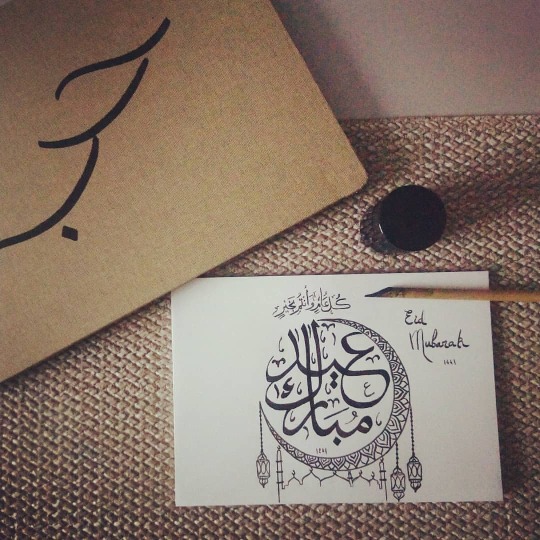 حب
كل عام وأنتم بخير
عيد
مبارك
Eid
Mubarak